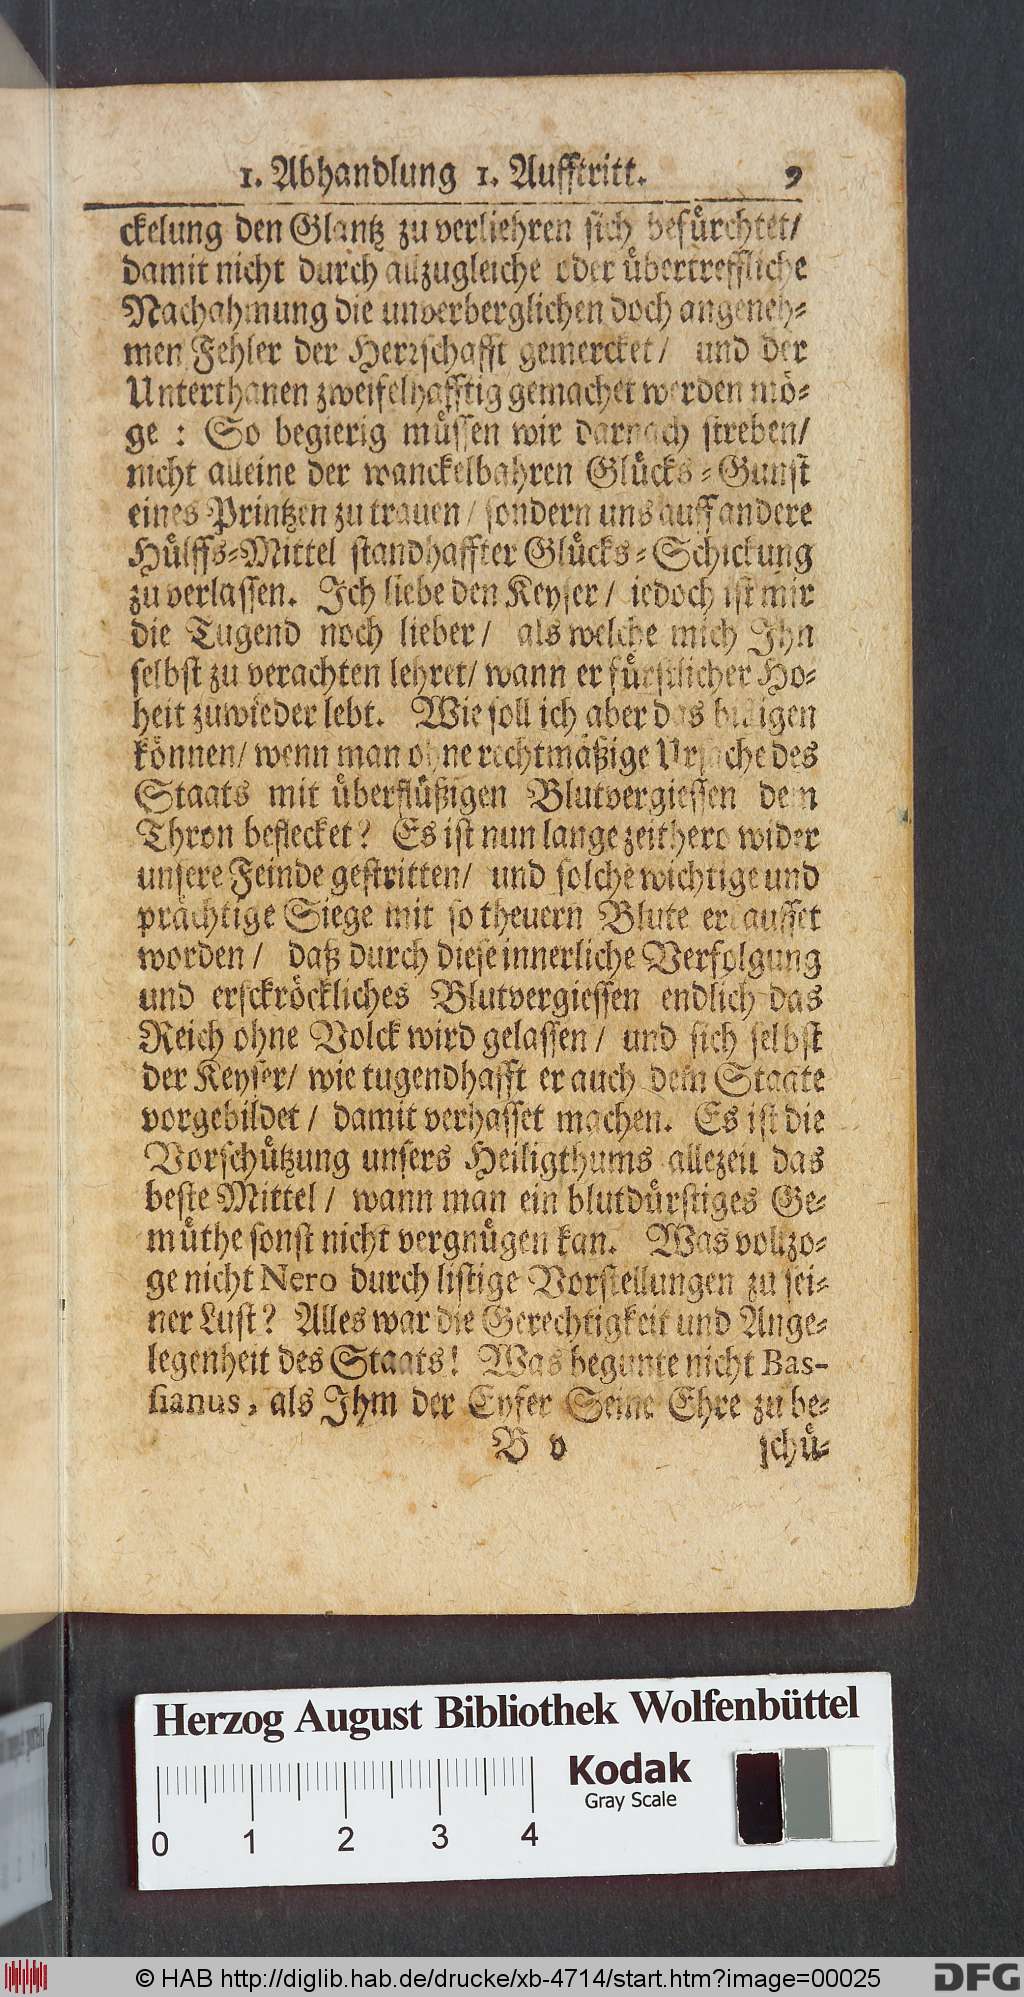 1. Abhandlung 1. Aufftritt. 9
ckelung den Glantz zu verliehren sich befürchtet/
damit nicht durch allzugleiche oder übertreffliche
Nachahmung die unverberglichen doch angeneh-
men Fehler der Herrschafft gemercket/ und der
Unterthanen zweifelhafftig gemachet werden mö-
ge : So begierig müssen wir darnach streben/
nicht alleine der wanckelbahren Glücks-Gunst
eines Printzen zu trauen/ sondern uns auff andere
Hülffs-Mittel standhaffter Glücks-Schickung
zu verlassen. Ich liebe den Keyser/ iedoch ist mir
die Tugend noch lieber/ als welche mich Ihn
selbst zu verachten lehret/ wann er fürstlicher Ho-
heit zuwieder lebt. Wie soll ich aber das billigen
können/ wenn man ohne rechtmäßige Ursache des
Staats mit überflüßigen Blutvergiessen dem
Thron beflecket? Es ist nun lange zeithero wider
unsere Feinde gestritten/ und solche wichtige und
prächtige Siege mit so theuern Blute erkauffet
worden/ daß durch diese innerliche Verfolgung
und ersckröckliches Blutvergiessen endlich das
Reich ohne Volck wird gelassen/ und sich selbst
der Keyser/ wie tugendhafft er auch dem Staate
vorgebildet/ damit verhasset machen. Es ist die
Vorschützung unsers Heiligthums allezeit das
beste Mittel/ wann man ein blutdürstiges Ge-
müthe sonst nicht vergnügen kan. Was vollzo-
ge nicht Nero durch listige Vorstellungen zu sei-
ner Lust? Alles war die Gerechtigkeit und Ange-
legenheit des Staats! Was begunte nicht Bas-
sianus, als Ihm der Eyfer Seine Ehre zu be-
B v schü-
Herzog August Bibliothek Wolfenbüttel
Kodak
Gray Scale
0 1 2 3 4
© HAB http://diglib.hab.de/drucke/xb-4714/start.htm?image=00025
DFG